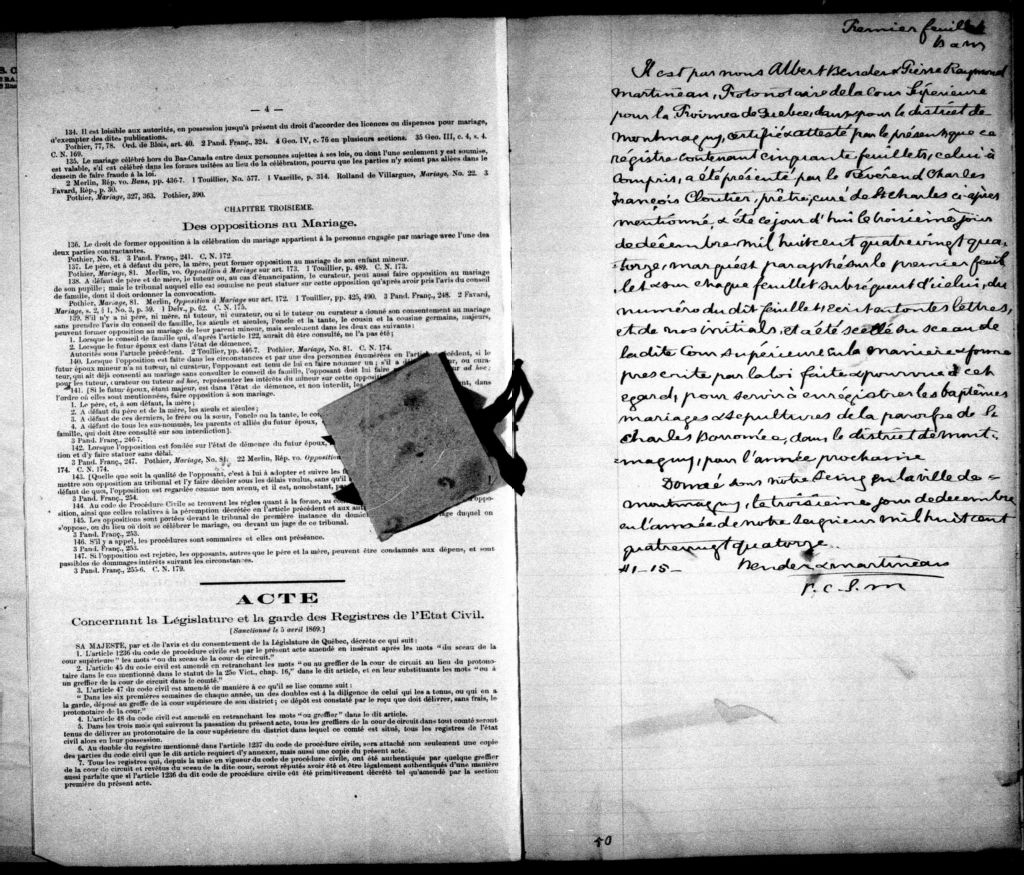 — 4 —
134. Il est loisible aux autorités, en possession jusqu'à présent du droit d'accorder des licences ou dispenses pour mariage,
d'exempter des dites publications.
Pothier, 77, 78. Ord. de Blois, art. 40. 2 Pand. Franç., 324. 4 Geo. IV, c. 76 en plusieurs sections. 35 Geo. III, c. 4, s. 4.
C. N. 169.
135. Le mariage célébré hors du Bas-Canada entre deux personnes sujettes à ses lois, ou dont l'une seulement y est soumise,
est valable, s'il est célébré dans les formes usitées au lieu de la célébration, pourvu que les parties n'y soient pas allées dans le
dessein de faire fraude à la loi.
2 Merlin, Rép. vo. Bans, pp. 436-7. 1 Touillier, No. 577. 1 Vazeille, p. 314. Rolland de Villargues, Mariage, No. 22. 3
Favard, Rép., p. 30.
Pothier, Mariage, 327, 363. Pothier, 390.
CHAPITRE TROISIEME.
Des oppositions au Mariage.
136. Le droit de former opposition à la célébration du mariage appartient à la personne engagée par mariage avec l'une des
deux parties contractantes.
Pothier, No. 81. 3 Pand. Franç., 241. C. N. 172.
137. Le père, et à défaut du père, la mère, peut former opposition au mariage de son enfant mineur.
Pothier, Mariage, 81. Merlin, vo. Opposition à Mariage sur art. 173. 1 Touillier, p. 489. C. N. 173.
138. A défaut de père et de mère, le tuteur ou, au cas d'émancipation, le curateur, peut aussi faire opposition au mariage
de son pupille; mais le tribunal auquel elle est soumise ne peut statuer sur cette opposition qu'après avoir pris l'avis du conseil
de famille, dont il doit ordonner la convocation.
Pothier, Mariage, 81. Merlin, Opposition à Mariage sur art. 172. 1 Touillier, pp. 425, 490. 3 Pand. Franç., 248. 2 Favard,
Mariage, s. 2, § 1, No. 3, p. 59. 1 Delv., p. 62. C. N. 175.
139. S'il n'y a ni père, ni mère, ni tuteur, ni curateur, ou si le tuteur ou curateur a donné son consentement au mariage
sans prendre l'avis du conseil de famille, les aïeuls et aïeules, l'oncle et la tante, le cousin et la cousine germains, majeurs,
peuvent former opposition au mariage de leur parent mineur, mais seulement dans les deux cas suivants:
1. Lorsque le conseil de famille qui, d'après l'article 122, aurait dû être consulté, ne l'a pas été;
2. Lorsque le futur époux est dans l'état de démence.
Autorités sous l'article précédent. 2 Touillier, pp. 446-7. Pothier, Mariage, No. 81. C. N. 174.
140. Lorsque l'opposition est faite dans les circonstances et par une des personnes énumérées en l'article précédent, si le
futur époux mineur n'a ni tuteur, ni curateur, l'opposant est tenu de lui en faire nommer un; s'il a
teur, qui ait déjà consenti au mariage sans consulter le conseil de famille, l'opposant doit lui faire ad hoc;
pour les tuteur, curateur ou tuteur ad hoc, représenter les intérêts du mineur sur cette opposition
141. [Si le futur époux, étant majeur, est dans l'état de démence, et non interdit, dans
l'ordre où elles sont mentionnées, faire opposition à son mariage.
1. Le père, et, à son défaut, la mère;
2. A défaut du père et de la mère, les aïeuls et aïeules;
3. A défaut de ces derniers, le frère ou la sœur, l'oncle ou la tante, le
4. A défaut de tous les sus-nommés, les parents et alliés du futur époux,
famille, qui doit être consulté sur son interdiction].
3 Pand. Franç., 246-7.
142. Lorsque l'opposition est fondée sur l'état de démence du futur époux,
tion et d'y faire statuer sans délai.
3 Pand. Franç., 247. Pothier, Mariage, No. 81. 22 Merlin, Rép. vo. Opposition
174. C. N. 174.
143. [Quelle que soit la qualité de l'opposant, c'est à lui à adopter et suivre les
mettre son opposition au tribunal et l'y faire décider sous les délais voulus, sans qu'il
défaut de quoi, l'opposition est regardée comme non avenu, et il est, nonobstant,
3 Pand. Franç., 254.
144. Au code de Procédure Civile se trouvent les règles quant à la forme, au
sition, ainsi que celles relatives à la péremption décrétée en l'article précédent et aux
145. Les oppositions sont portées devant le tribunal de première instance du domicile duquel on
s'oppose, ou du lieu où doit se célébrer le mariage, ou devant un juge de ce tribunal.
3 Pand. Franç., 253.
146. S'il y a appel, les procédures sont sommaires et elles ont préséance.
3 Pand. Franç., 253.
147. Si l'opposition est rejetée, les opposants, autres que le père et la mère, peuvent être condamnés aux dépens, et sont
passibles de dommages intérêts suivant les circonstances.
3 Pand. Franç., 255-6. C. N. 179.
ACTE
Concernant la Législature et la garde des Registres de l'Etat Civil.
[Sanctionné le 5 avril 1869.]
SA MAJESTE, par et de l'avis et du consentement de la Législature de Québec, décrète ce qui suit:
1. L'article 1236 du code de procédure civile est par le présent acte amendé en insérant après les mots "du sceau de la
cour supérieure" les mots "ou du sceau de la cour de circuit."
2. L'article 45 du code civil est amendé en retranchant les mots "ou au greffier de la cour de circuit au lieu du protono-
taire dans le cas mentionné dans le statut de la 25e Vict., chap. 16," dans le dit article, et en leur substituants les mots "ou à
un greffier de la cour de circuit dans le comté."
3. L'article 47 du code civil est amendé de manière à ce qu'il se lise comme suit:
"Dans les six premières semaines de chaque année, un des doubles est à la diligence de celui qui les a tonus, ou qui en a
la garde, déposé au greffe de la cour supérieure de son district; ce dépôt est constaté par le reçu que doit délivrer, sans frais, le
protonotaire de la cour."
4. L'article 48 du code civil est amendé en retranchant les mots "ou greffier" dans le dit article.
5. Dans les trois mois qui suivront la passation du présent acte, tous les greffiers de la cour de circuit dans tout comté seront
tenus de délivrer au protonotaire de la cour supérieure du district dans lequel ce comté est situé, tous les registres de l'état
civil alors en leur possession.
6. Au double du registre mentionné dans l'article 1237 du code de procédure civile, sera attaché non seulement une copie
des parties du code civil que le dit article requiert d'y annexer, mais aussi une copie du présent acte.
7. Tous les registres qui, depuis la mise en vigueur du code de procédure civile, ont été authentiqués par quelque greffier
de la cour de circuit et revêtus du sceau de la dite cour, seront réputés avoir été et être légalement authentiqués d'une manière
aussi parfaite que si l'article 1236 du dit code de procédure civile eût été primitivement décrété tel qu'amendé par la section
première du présent acte.
Premier feuillet
B & M
Il est par nous Albert Bender & Pierre Raymond
Martineau, Protonotaire de la Cour Supérieure
pour la Province de Quebec dans & pour le district de
Montmagny, certifié & attesté par le présent que ce
registre contenant cinquante feuillets, celui-ci
compris, a été présenté par le Révérend Charles
François Cloutier, prêtre, curé de St Charles ci-après
mentionné, & été ce jour d'hui le troisième jour
de décembre mil huit cent quatre vingt qua-
torze, marqué & paraphé sur le premier feuil
let & sur chaque feuillet subséquent d'icelui, du
numéro du dit feuillet écrit en toutes lettres,
et de nos initiales, et a été scellé du sceau de
la dite Cour Supérieure en la manière & forme
prescrite par la loi faite & pourvue à cet
égard, pour servir à enrégistrer les baptêmes
mariages & sépultures de la paroisse de St
Charles Borromée, dans le district de Mont-
magny, pour l'année prochaine
Donné sous notre Seing en la ville de
Montmagny, le troisième jour de decembre
en l'année de notre Seigneur mil huit cent
quatre vingt quatorze.
$1-15-
Bender & Martineau
P. C. S. M
50